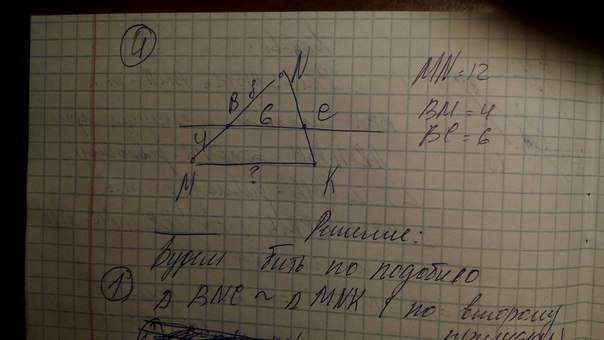 4
N
MN = 12
8
B
6
C
BM = 4
BC = 6
4
M
?
K
Решение:
Будем бить по подобию
1
Δ BNC ~ Δ MNK по второму